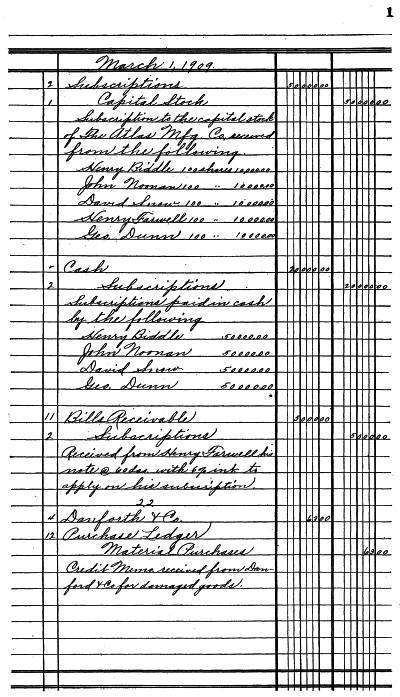 1
March 1, 1909.
2 Subscriptions 5000000
1 Capital Stock 5000000
Subscription to the capital stock
of The Atlas Mfg. Co. received
from the following.
Henry Biddle 100 shares 1000000
John Noonan 100 " 1000000
David Snow 100 " 1000000
Henry Farwell 100 " 1000000
Geo. Dunn 100 " 1000000
Cash 2000000
2 Subscriptions 2000000
Subscriptions paid in cash
by the following
Henry Biddle 500000
John Noonan 500000
David Snow 500000
Geo. Dunn 500000
11 Bills Receivable 500000
2 Subscriptions 500000
Received from Henry Farwell his
note @ 60 das. with 6% int. to
apply on his subscription.
22
4 Danforth & Co. 6300
12 Purchase Ledger
Material Purchases 6300
Credit Memo received from Dan-
ford & Co for damaged goods.